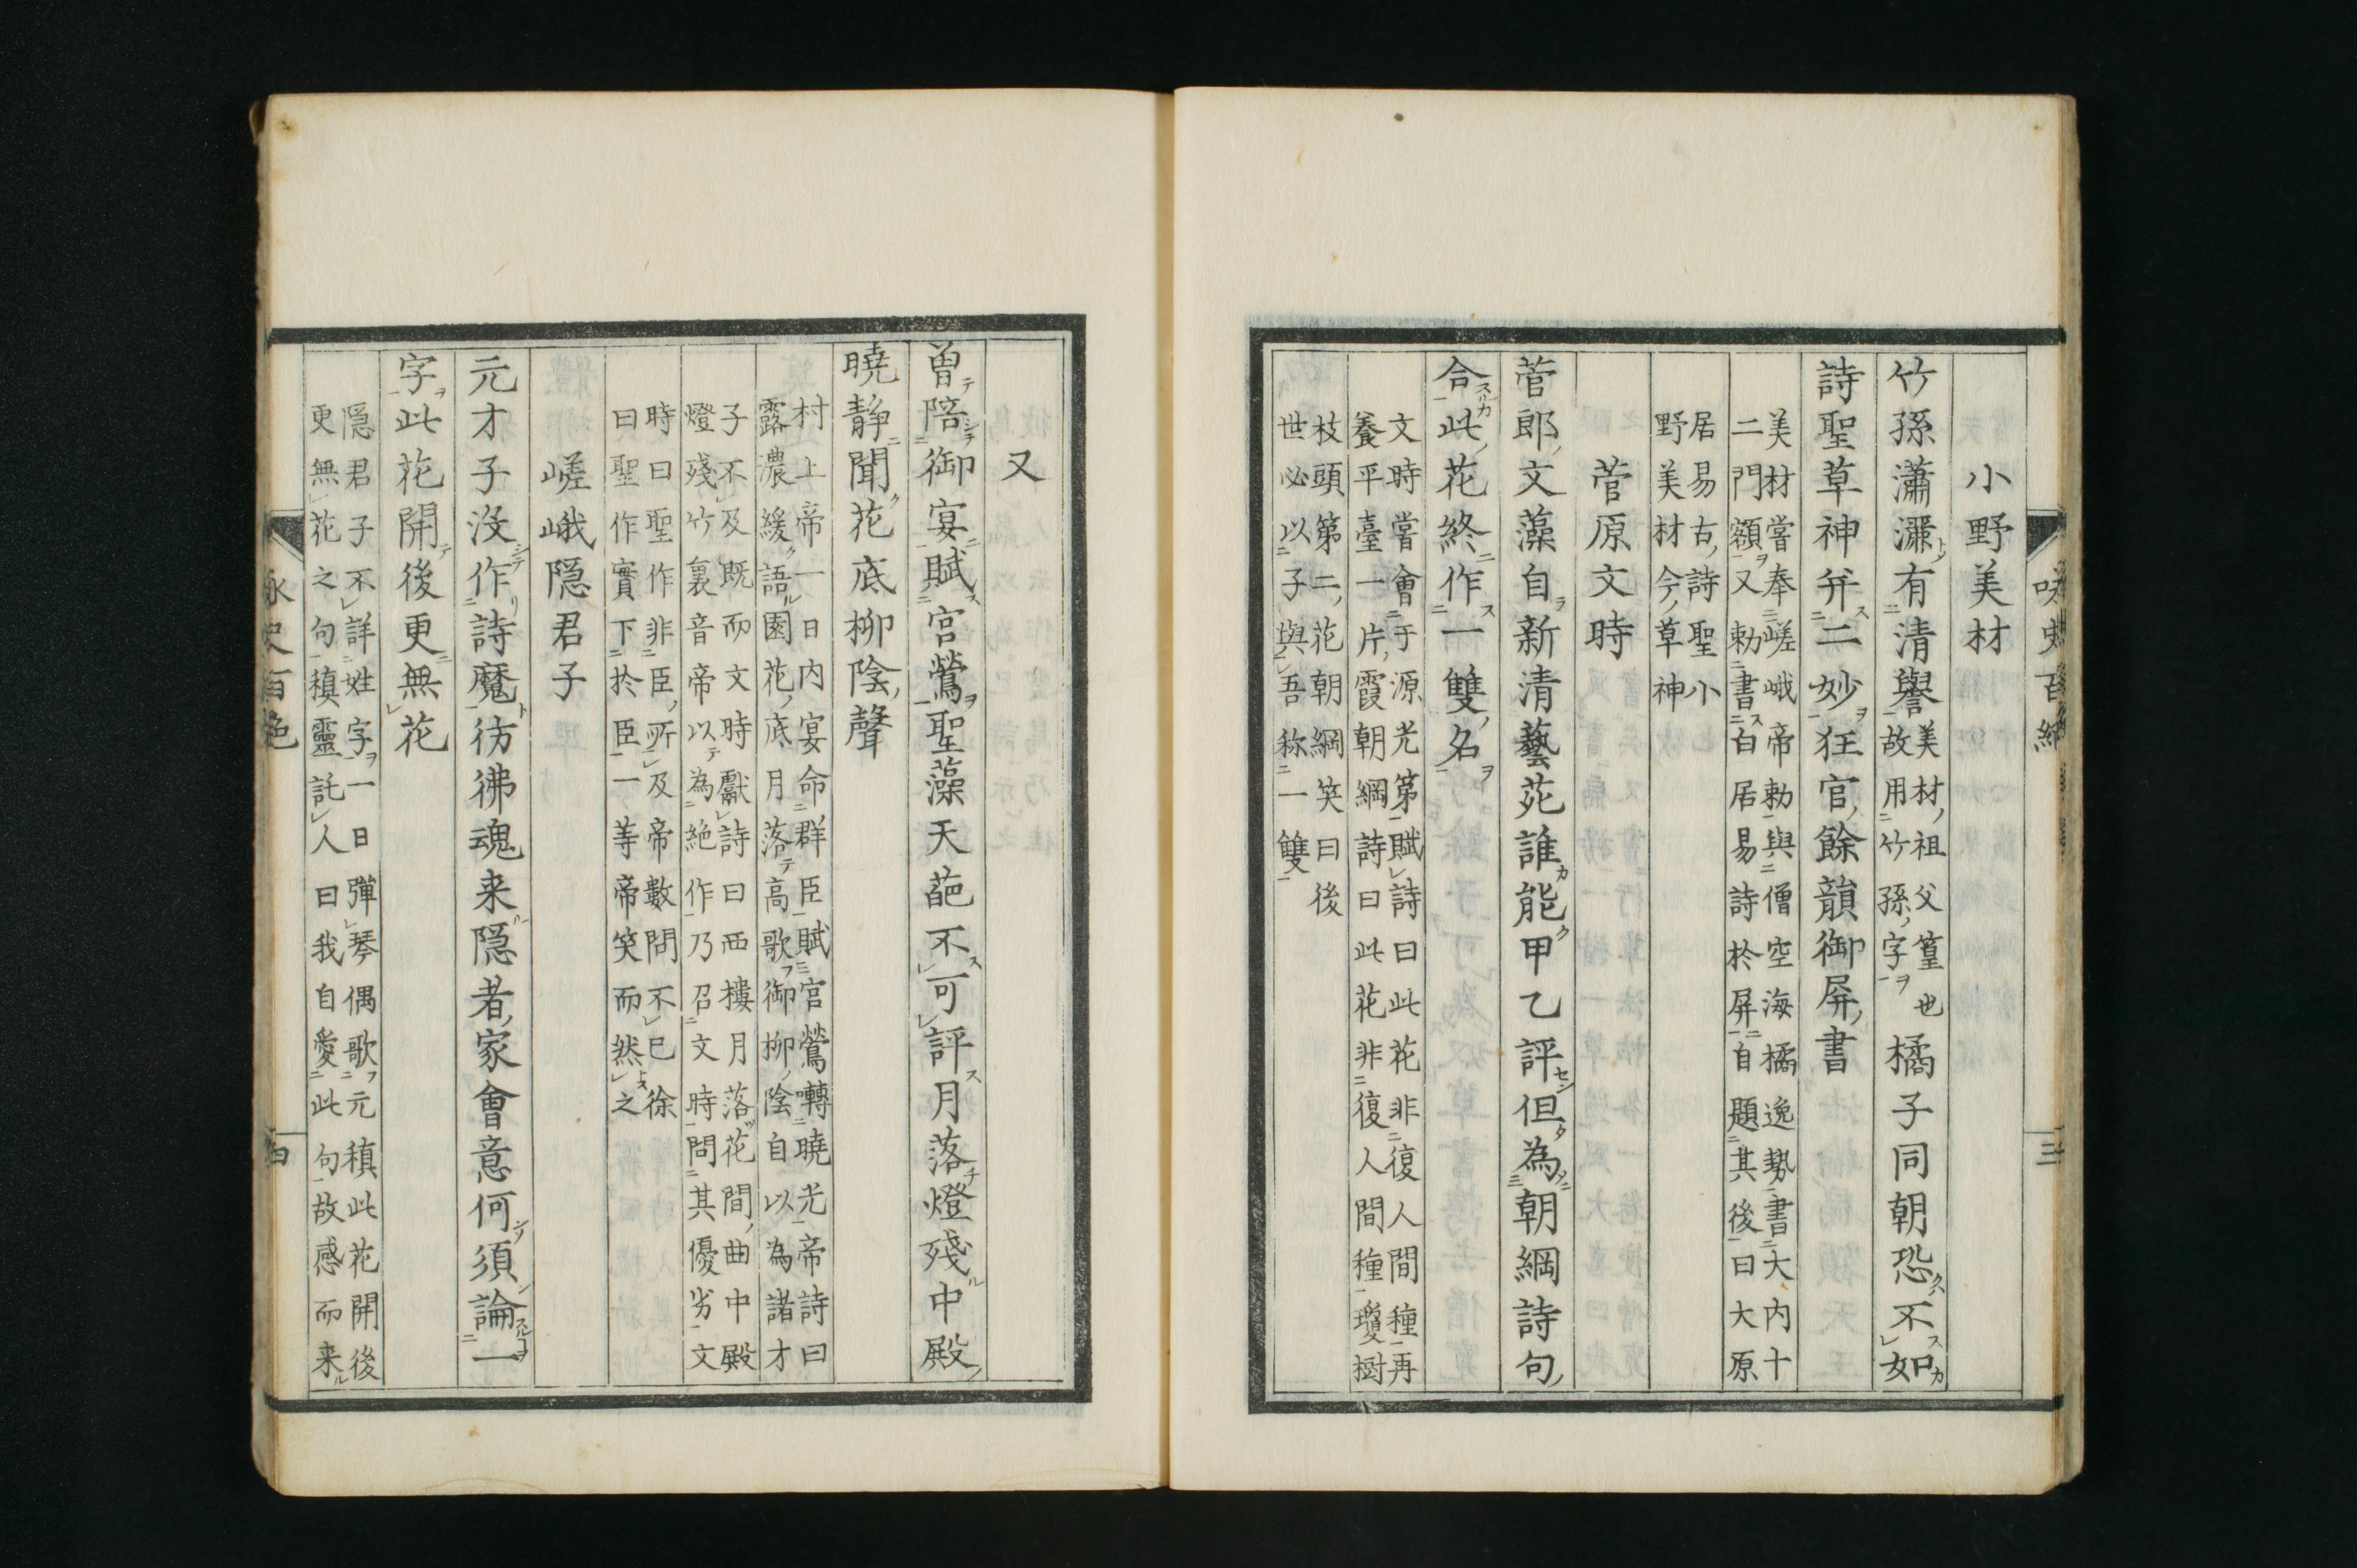 小野美材
竹孫瀟灑有清譽美材祖父篁也故用竹孫字橘子同朝恐不如
詩聖草神并二妙狂官餘韻御屏書
美材嘗奉嵯峨帝勅與僧空海橘逸勢書大内十
二門額又勅書白居易詩於屏自題其後曰大原
居易古詩聖小
野美材今草神
菅原文時
菅郎文藻自新清藝苑誰能甲乙評但為朝綱詩句
合此花終作一雙名
文時嘗會于源光第賦詩曰此花非復人間種再
養平臺一片霞朝綱詩曰此花非復人間種瓊樹
枝頭第二花朝綱笑曰後
世必以子與吾称一雙
詠史百絶
三
又
曽陪御宴賦宮鶯聖藻天葩不可評月落燈殘中殿
曉靜聞花底柳陰聲
村上帝一日内宴命群臣賦宮鶯囀曉光帝詩曰
露濃緩語園花底月落高歌御柳陰自以為諸才
子不及既而文時獻詩曰西樓月落花間曲中殿
燈殘竹裏音帝以為絶作乃召文時問其優劣文
時曰聖作非臣所及帝數問不已徐
曰聖作實下於臣一等帝笑而然之
嵯峨隠君子
元才子没作詩魔彷彿魂来隠者家會意何須論一
字此花開後更無花
隠君子不詳姓字一日彈琴偶歌元稹此花開後
更無花之句稹靈託人曰我自愛此句故感而来
詠史百絶
四